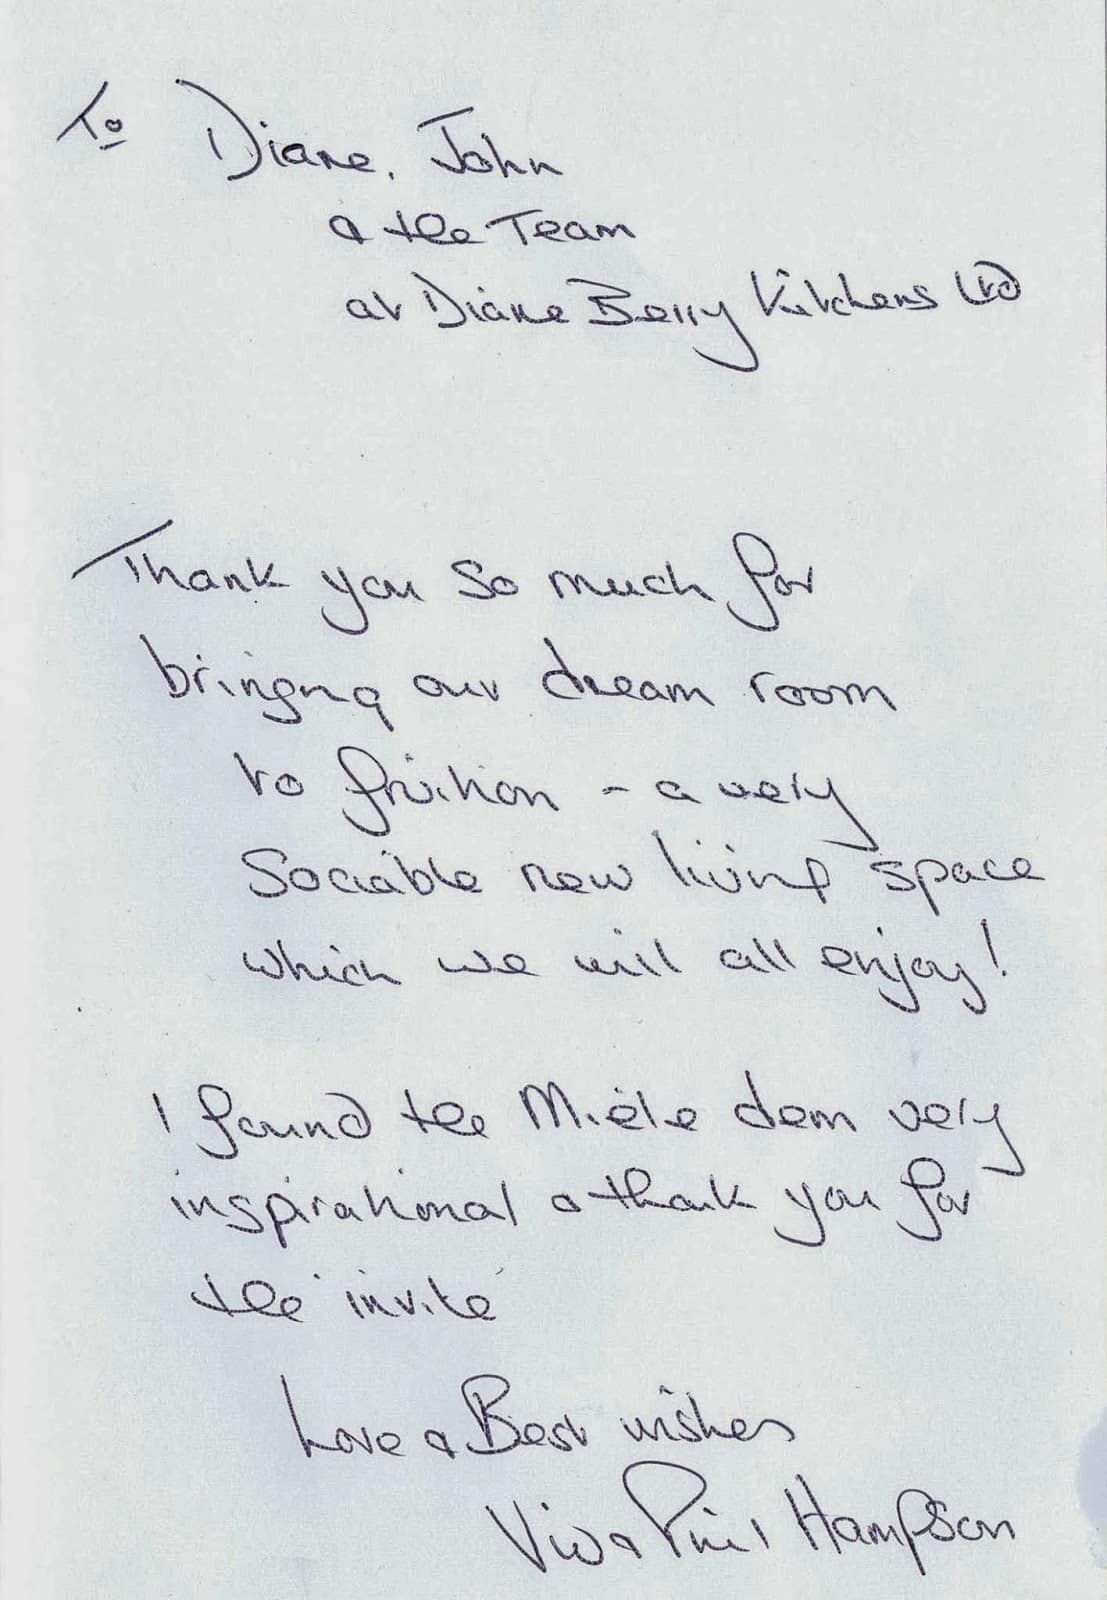 To Diane, John
& the Team
at Diane Berry Kitchens Ltd
Thank you so much for
bringing our dream room
to fruition - a very
Sociable new living space
which we will all enjoy!
I found the Miele dem very
inspirational & thank you for
the invite
Love & Best wishes
Viv & Phil Hampson